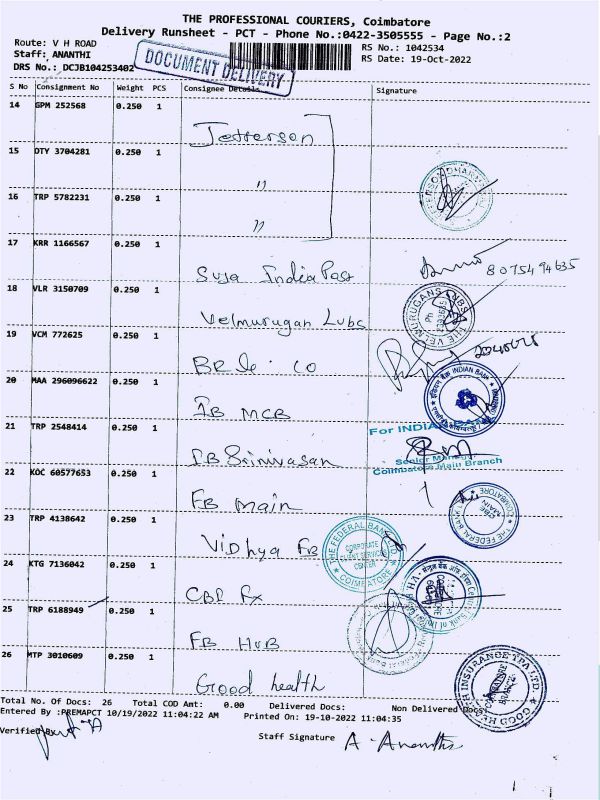 THE PROFESSIONAL COURIERS, Coimbatore
Delivery Runsheet - PCT - Phone No.:0422-3505555 - Page No.:2
Route: V H ROAD
Staff: ANANTHI
DRS No.: DCJB104253402
DOCUMENT DELIVERY
RS No.: 1042534
RS Date: 19-Oct-2022
S No Consignment No Weight PCS Consignee Details Signature
14 GPM 252568 0.250 1 Jefferson
15 DTY 3704281 0.250 1 "
16 TRP 5782231 0.250 1 "
17 KRR 1166567 0.250 1 Suja India Pass 8075494635
18 VLR 3150709 0.250 1 Velmurugan Lubs
19 VCM 772625 0.250 1
20 MAA 296096622 0.250 1 IB MCB
INDIAN BANK
21 TRP 2548414 0.250 1 IB Srinivasan
For INDIAN BANK
Senior Manager
Coimbatore Main Branch
22 KOC 60577653 0.250 1 FB Main
23 TRP 4138642 0.250 1 Vidhya FB
THE FEDERAL BANK
CORPORATE
CLIENT SERVICES
CENTER
COIMBATORE
24 KTG 7136042 0.250 1
25 TRP 6188949 0.250 1 FB HUB
26 MTP 3010609 0.250 1 Good health
GOOD HEALTH INSURANCE TPA LTD.
COIMBATORE
BRANCH
Total No. Of Docs: 26 Total COD Amt: 0.00 Delivered Docs: Non Delivered Docs:
Entered By :PREMAPCT 10/19/2022 11:04:22 AM Printed On: 19-10-2022 11:04:35
Verified By
Staff Signature A. Ananthi